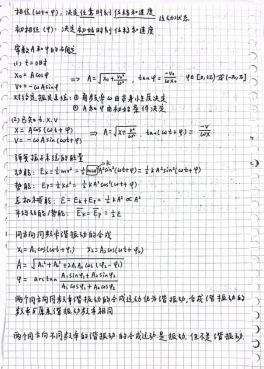 相位(ωt+φ): 决定任意时刻位移和速度 运动状态
初相位(φ): 决定初始时刻位移和速度
常数A和φ的确定
(1) t=0时
x₀=Acosφ
v₀=-ωAsinφ
=> A=√(x₀²+v₀²/ω²), tanφ=-v₀/ωx₀ φ∈[0,2π]或[-π,π]
对给定振动系统: ① 角频率ω由本身性质决定
② A和φ由初始条件决定
(2) 已知t.x.v
x=Acos(ωt+φ)
v=-ωAsin(ωt+φ)
=> A=√(x²+v²/ω²), tan(ωt+φ)=-v/ωx
弹簧振子系统的能量
动能: Ek=½mv²=½mω²A²sin²(ωt+φ)=½kA²sin²(ωt+φ)
势能: Ep=½kx²=½kA²cos²(ωt+φ)
总机械能: E=Ek+Ep=½kA²∝A²
平均动能/势能: Ek=Ep=½E
同方向同频率谐振动的合成
x₁=A₁cos(ωt+φ₁) x₂=A₂cos(ωt+φ₂)
A=√(A₁²+A₂²+2A₁A₂cos(φ₂-φ₁))
φ=arctan (A₁sinφ₁+A₂sinφ₂)/(A₁cosφ₁+A₂cosφ₂)
两个同方向同频率谐振动的合成运动仍为谐振动,合成谐振动的
频率与原来谐振动频率相同
两个同方向不同频率的谐振动的合成运动是振动,但不是谐振动